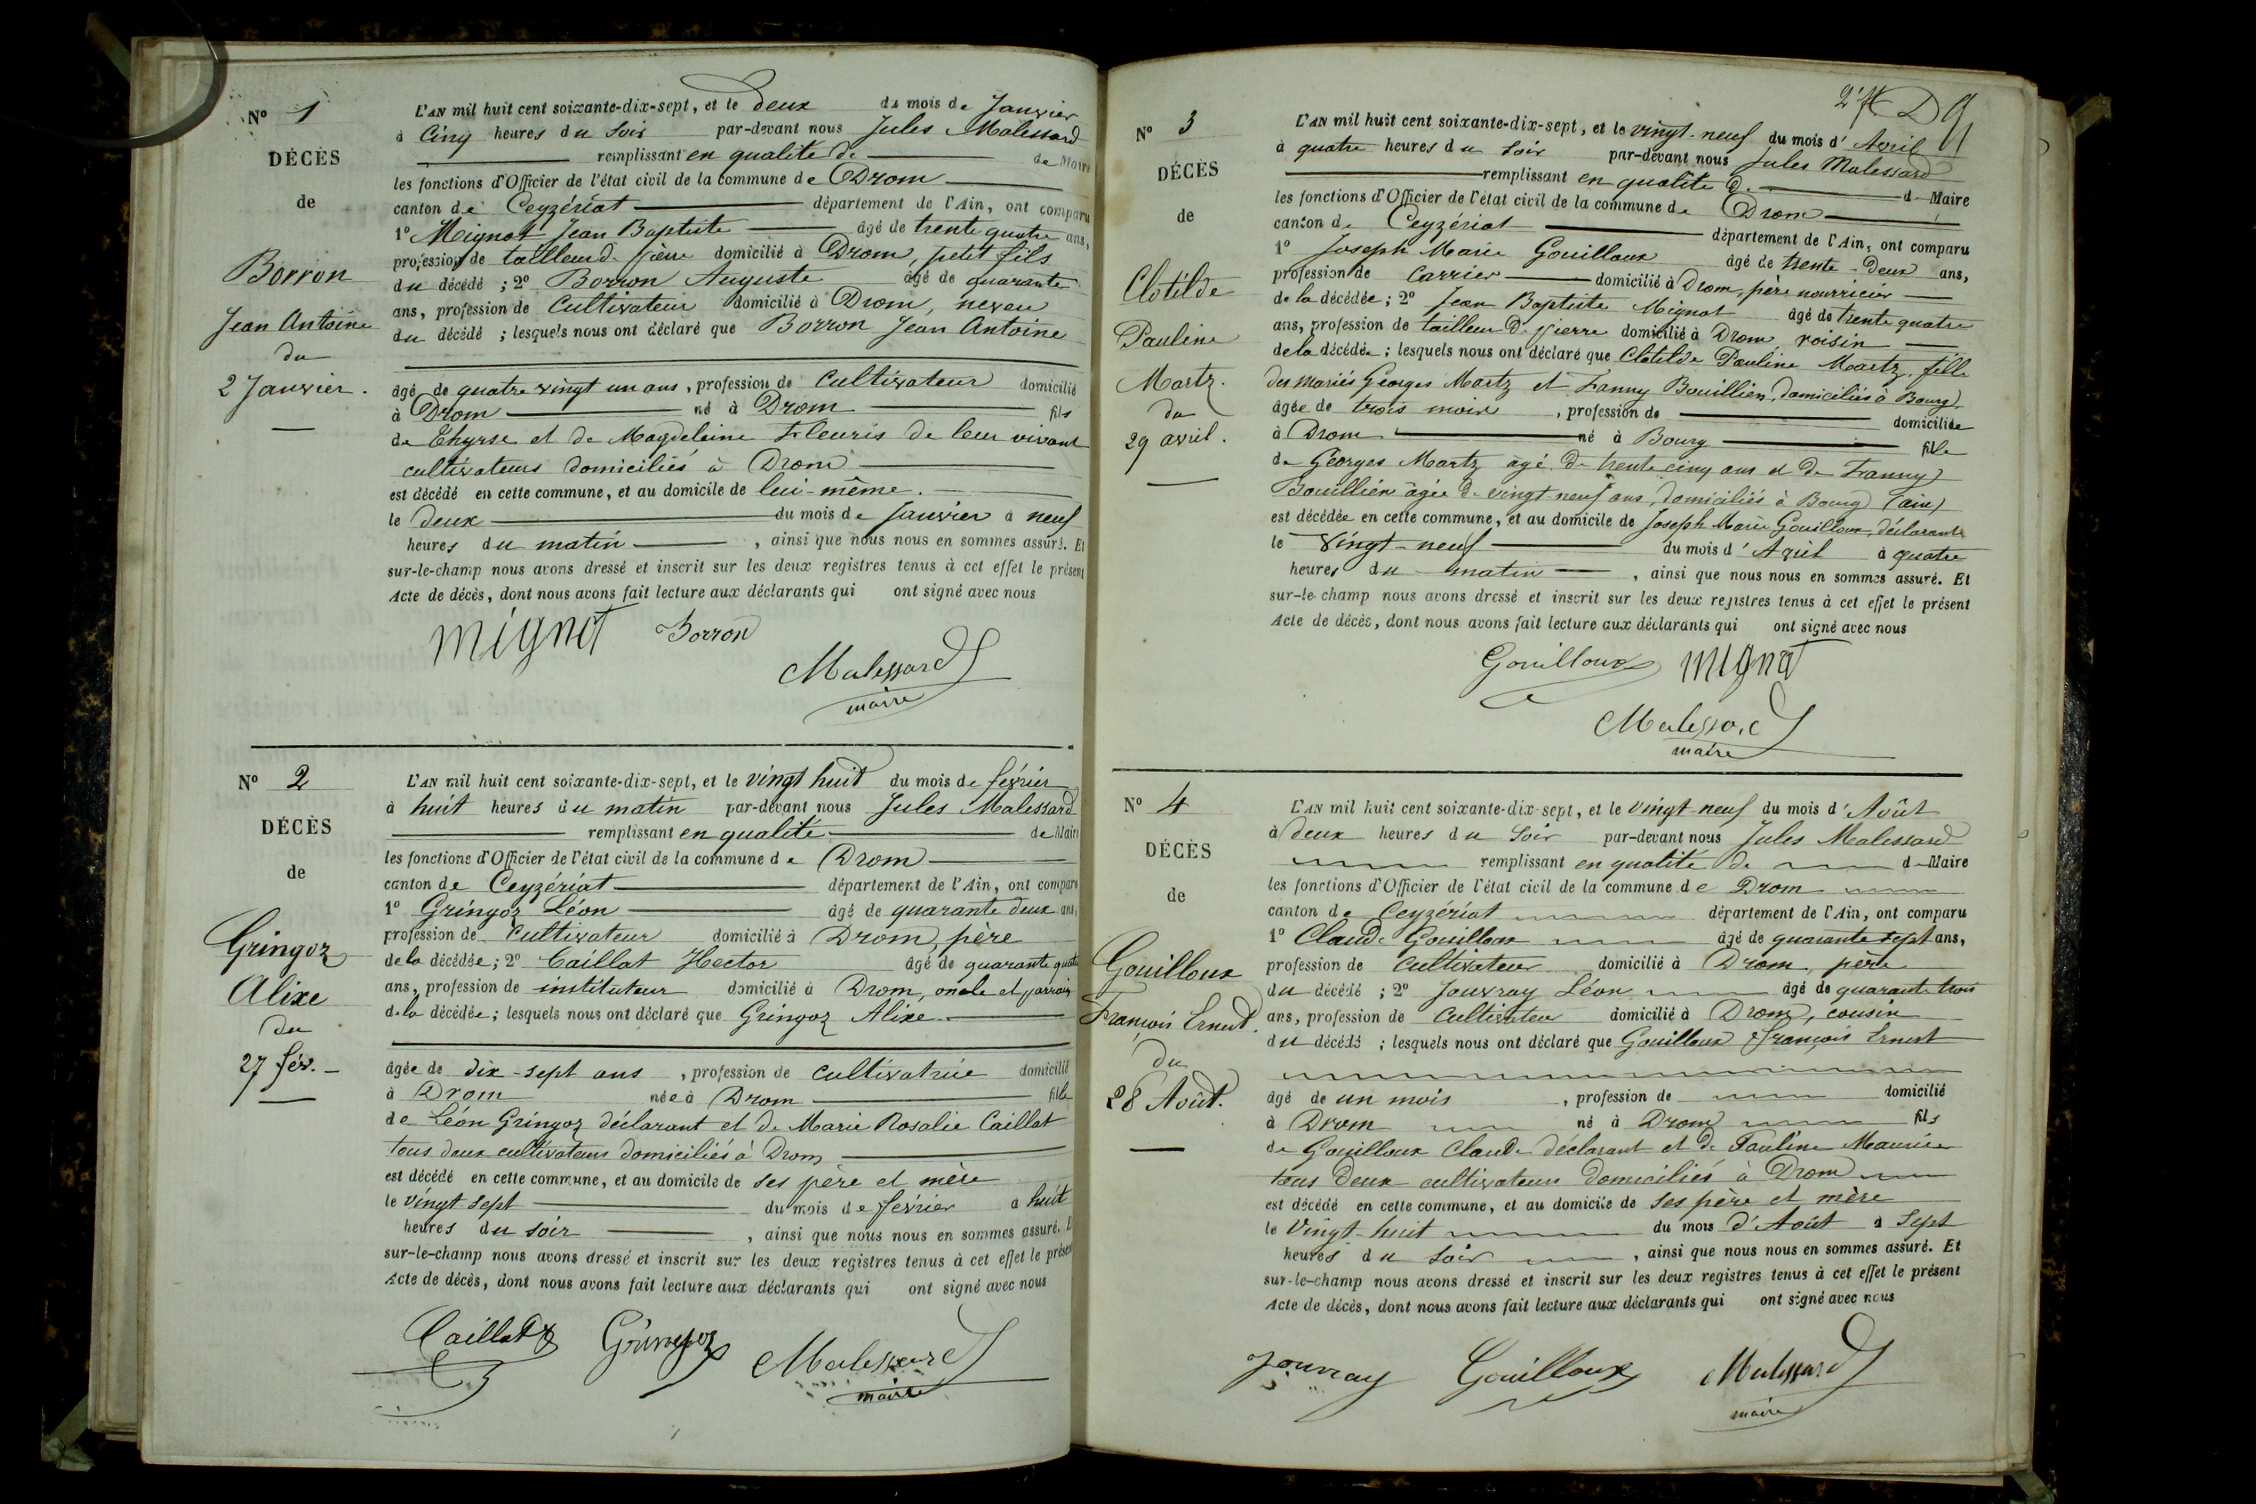 Nº 1
DÉCÈS
de
Borron
Jean Antoine
du
2 Janvier.
L'AN mil huit cent soixante-dix-sept, et le deux du mois de Janvier
à cinq heures du soir par-devant nous Jules Malessard
remplissant en qualité de de Maire
les fonctions d'Officier de l'état civil de la commune de Drom
canton de Ceyzériat département de l'Ain, ont comparu
1º Mignot Jean Baptiste âgé de trente quatre ans,
profession de tailleur d. pierre domicilié à Drom, petit fils
du décédé ; 2º Borron Auguste âgé de quarante
ans, profession de cultivateur domicilié à Drom, neveu
du décédé ; lesquels nous ont déclaré que Borron Jean Antoine
âgé de quatre vingt un ans, profession de cultivateur domicilié
à Drom né à Drom fils
de Thyrse et de Magdeleine Fleuris de leur vivant
cultivateurs domiciliés à Drom
est décédé en cette commune, et au domicile de lui-même.
le deux du mois de Janvier à neuf
heures du matin, ainsi que nous nous en sommes assuré. Et
sur-le-champ nous avons dressé et inscrit sur les deux registres tenus à cet effet le présent
Acte de décès, dont nous avons fait lecture aux déclarants qui ont signé avec nous
Mignot Borron
Malessard
maire
Nº 2
DÉCÈS
de
Gringoz
Alixe
du
27 fév.
L'AN mil huit cent soixante-dix-sept, et le vingt huit du mois de février
à huit heures du matin par-devant nous Jules Malessard
remplissant en qualité de Maire
les fonctions d'Officier de l'état civil de la commune de Drom
canton de Ceyzériat département de l'Ain, ont comparu
1º Gringoz Léon âgé de quarante deux ans,
profession de cultivateur domicilié à Drom, père
de la décédée ; 2º Caillat Hector âgé de quarante quatre
ans, profession de instituteur domicilié à Drom, oncle et parrain
de la décédée ; lesquels nous ont déclaré que Gringoz Alixe
âgée de dix-sept ans, profession de cultivatrice domicilié
à Drom née à Drom fille
de Léon Gringoz déclarant et de Marie Rosalie Caillat
tous deux cultivateurs domiciliés à Drom
est décédé en cette commune, et au domicile de ses père et mère
le vingt sept du mois de février à huit
heures du soir, ainsi que nous nous en sommes assuré. E
sur-le-champ nous avons dressé et inscrit sur les deux registres tenus à cet effet le présent
Acte de décès, dont nous avons fait lecture aux déclarants qui ont signé avec nous
Caillat Gringoz Malessard
maire
Nº 3
DÉCÈS
de
Clotilde
Pauline
Martz.
du
29 avril.
L'AN mil huit cent soixante-dix-sept, et le vingt-neuf du mois d'Avril
à quatre heures du soir par-devant nous Jules Malessard
remplissant en qualité d. d. Maire
les fonctions d'Officier de l'état civil de la commune de Drom
canton de Ceyzériat département de l'Ain, ont comparu
1º Joseph Marie Gouilloux âgé de trente-deux ans,
profession de carrier domicilié à Drom, père nourricier
de la décédée ; 2º Jean Baptiste Mignot âgé de trente quatre
ans, profession de tailleur d. pierre domicilié à Drom voisin
de la décédée ; lesquels nous ont déclaré que Clotilde Pauline Martz, fille
des mariés Georges Martz et Fanny Bouillien, domiciliés à Bourg,
âgée de trois mois, profession de domiciliée
à Drom né à Bourg fille
de Georges Martz âgé de trente cinq ans et de Fanny
Bouillien âgée de vingt-neuf ans, domiciliés à Bourg (ain)
est décédée en cette commune, et au domicile de Joseph Marie Gouilloux, déclarant
le vingt-neuf du mois d'Avril à quatre
heures du matin, ainsi que nous nous en sommes assuré. Et
sur-le-champ nous avons dressé et inscrit sur les deux registres tenus à cet effet le présent
Acte de décès, dont nous avons fait lecture aux déclarants qui ont signé avec nous
Gouilloux Mignot
Malessard
maire
Nº 4
DÉCÈS
de
Gouilloux
François Ernest.
du
28 Août.
L'AN mil huit cent soixante-dix-sept, et le vingt-neuf du mois d'Août
à deux heures du soir par-devant nous Jules Malessard
remplissant en qualité de d. Maire
les fonctions d'Officier de l'état civil de la commune de Drom
canton de Ceyzériat département de l'Ain, ont comparu
1º Claude Gouilloux âgé de quarante sept ans,
profession de cultivateur domicilié à Drom, père
du décédé ; 2º Jouvray Léon âgé de quarante trois
ans, profession de cultivateur domicilié à Drom, cousin
du décédé ; lesquels nous ont déclaré que Gouilloux François Ernest
âgé de un mois, profession de domicilié
à Drom né à Drom fils
de Gouilloux Claude déclarant et de Pauline Maurier
tous deux cultivateurs domiciliés à Drom
est décédé en cette commune, et au domicile de ses père et mère
le vingt-huit du mois d'Août à sept
heures du soir, ainsi que nous nous en sommes assuré. Et
sur-le-champ nous avons dressé et inscrit sur les deux registres tenus à cet effet le présent
Acte de décès, dont nous avons fait lecture aux déclarants qui ont signé avec nous
Jouvray Gouilloux Malessard
maire